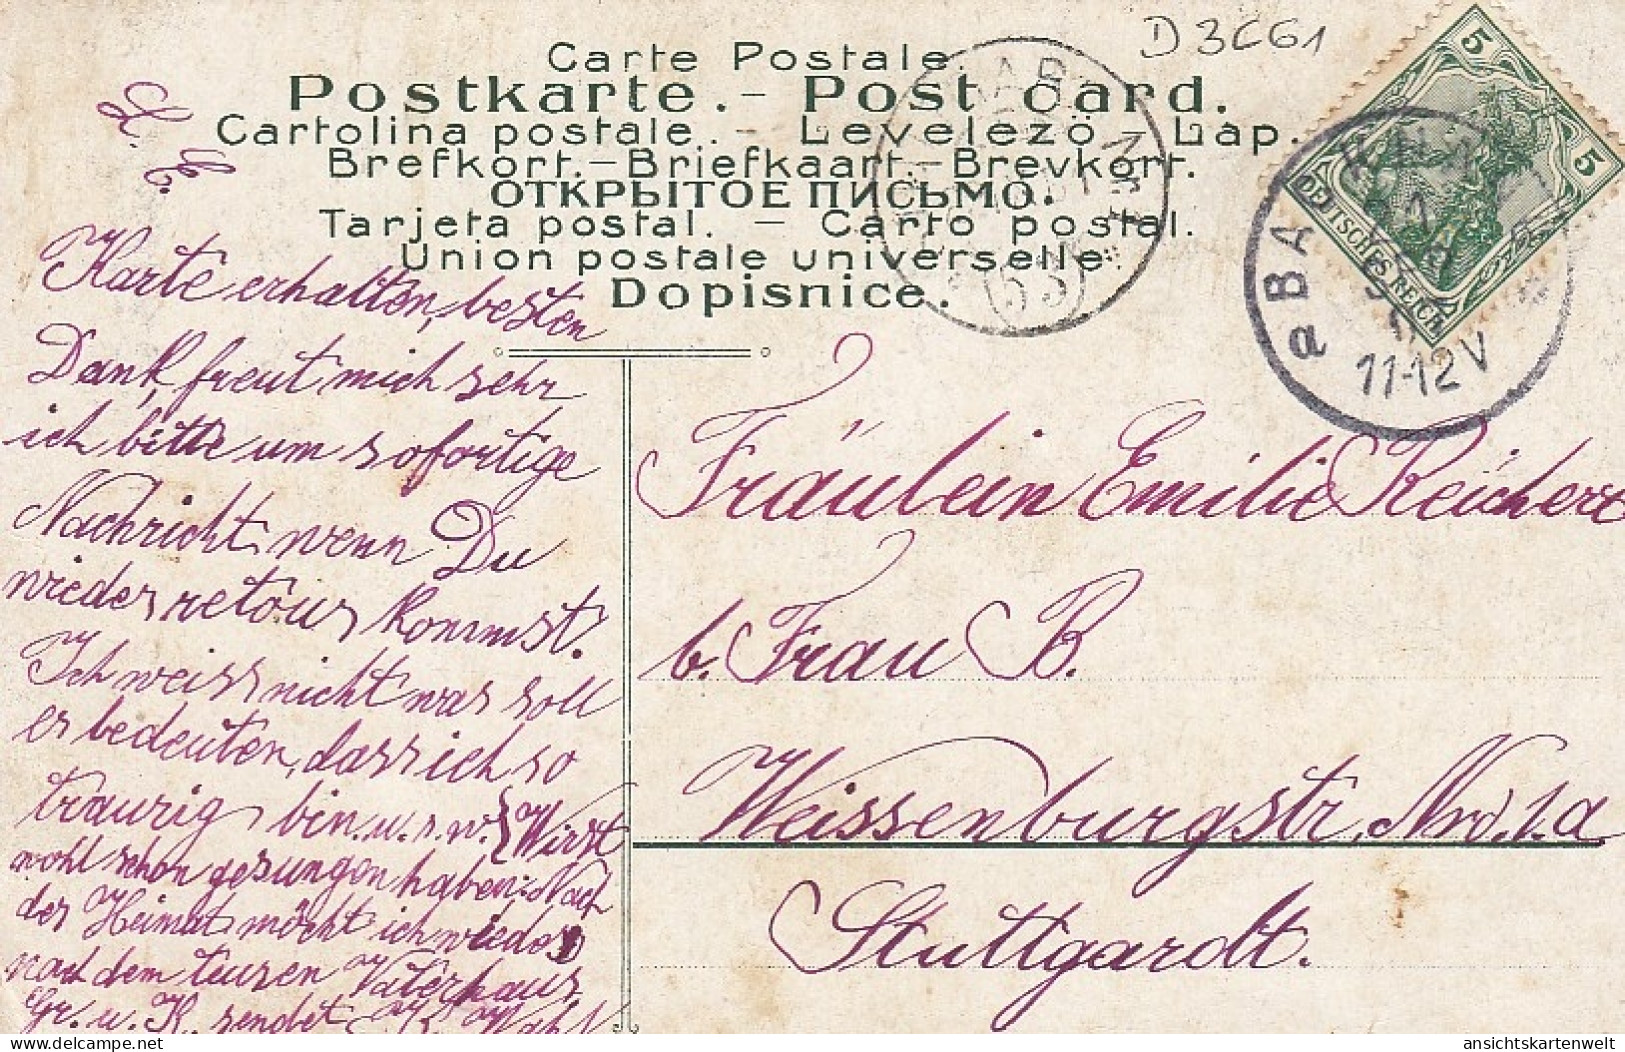 D 3661
Carte Postale.
Postkarte. - Post card.
Cartolina postale. - Levelező - Lap.
Brefkort. - Briefkaart. - Brevkort.
ОТКРЫТОЕ ПИСЬМО.
Tarjeta postal. - Carto postal.
Union postale universelle.
Dopisnice.
5
5
DEUTSCHES REICH
BA
11-12 V
L. E.
Karte erhalten, besten
Dank, freut mich sehr
ich bitte um sofortige
Nachricht wenn Du
wieder retour kommst.
Ich weiss nicht was soll
es bedeuten, dass ich so
traurig bin. u. s. w. Wirst
wohl schon gesungen haben: Nach
der Heimat möcht ich wieder
nach dem teuren Vaterhaus.
Gr. u. K. sendet
Fräulein Emilie Reichert
b. Frau B.
Weissenburgstr. Nro. 1.a
Stuttgardt.
ansichtskartenwelt